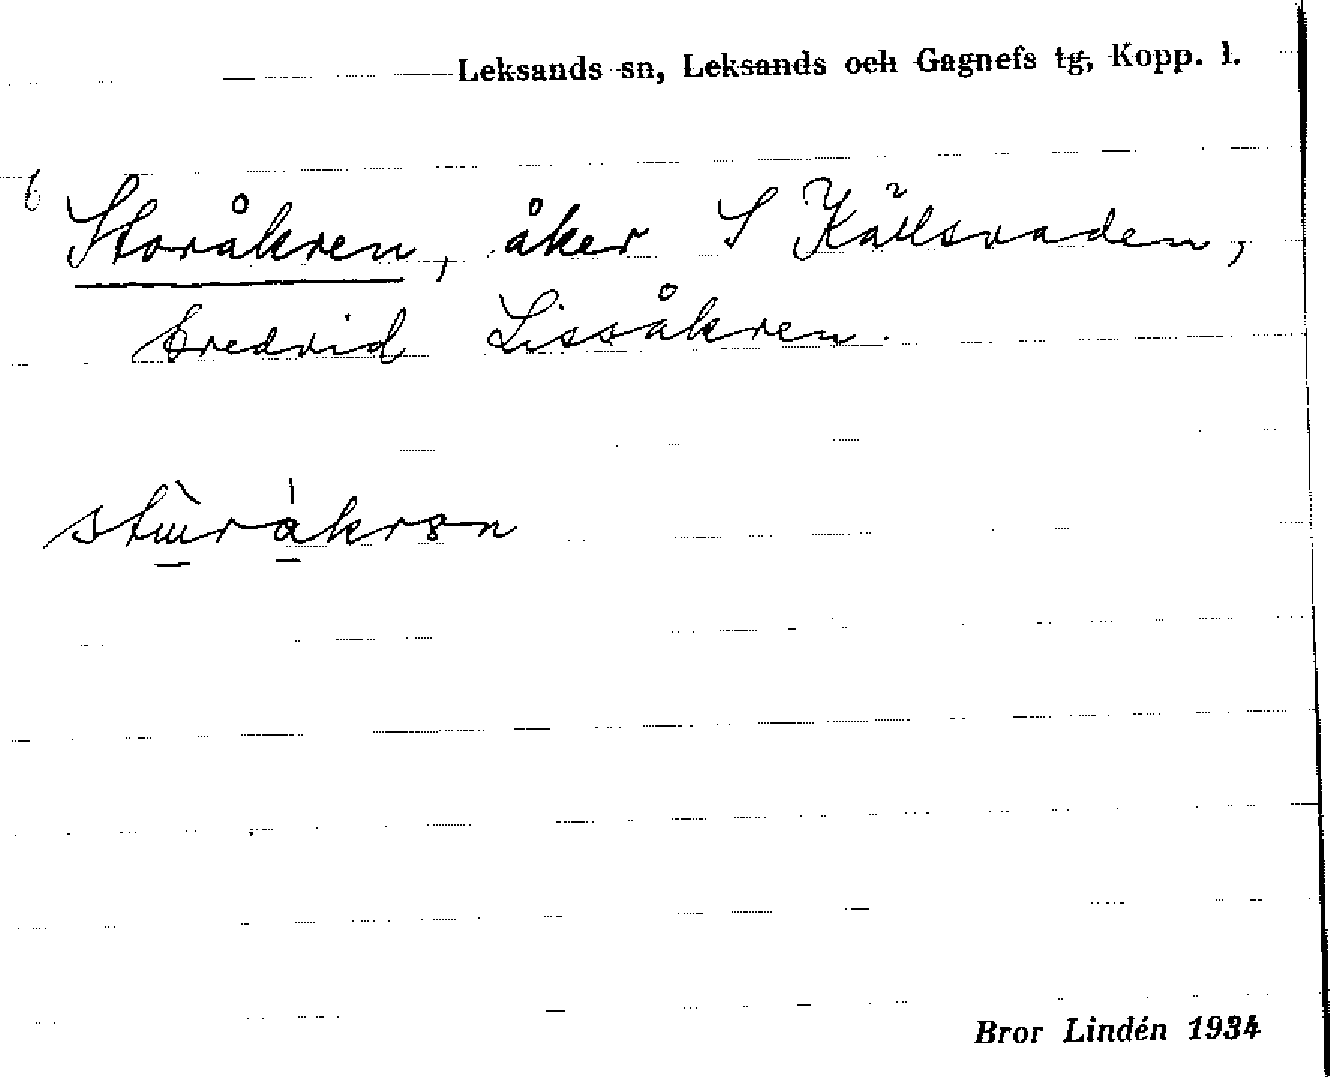 Leksands sn, Leksands och Gagnefs tg, Kopp. l.
6
Storåkren, åker S Källsvaden,
bredvid Lissåkren.
Bror Lindén 1934